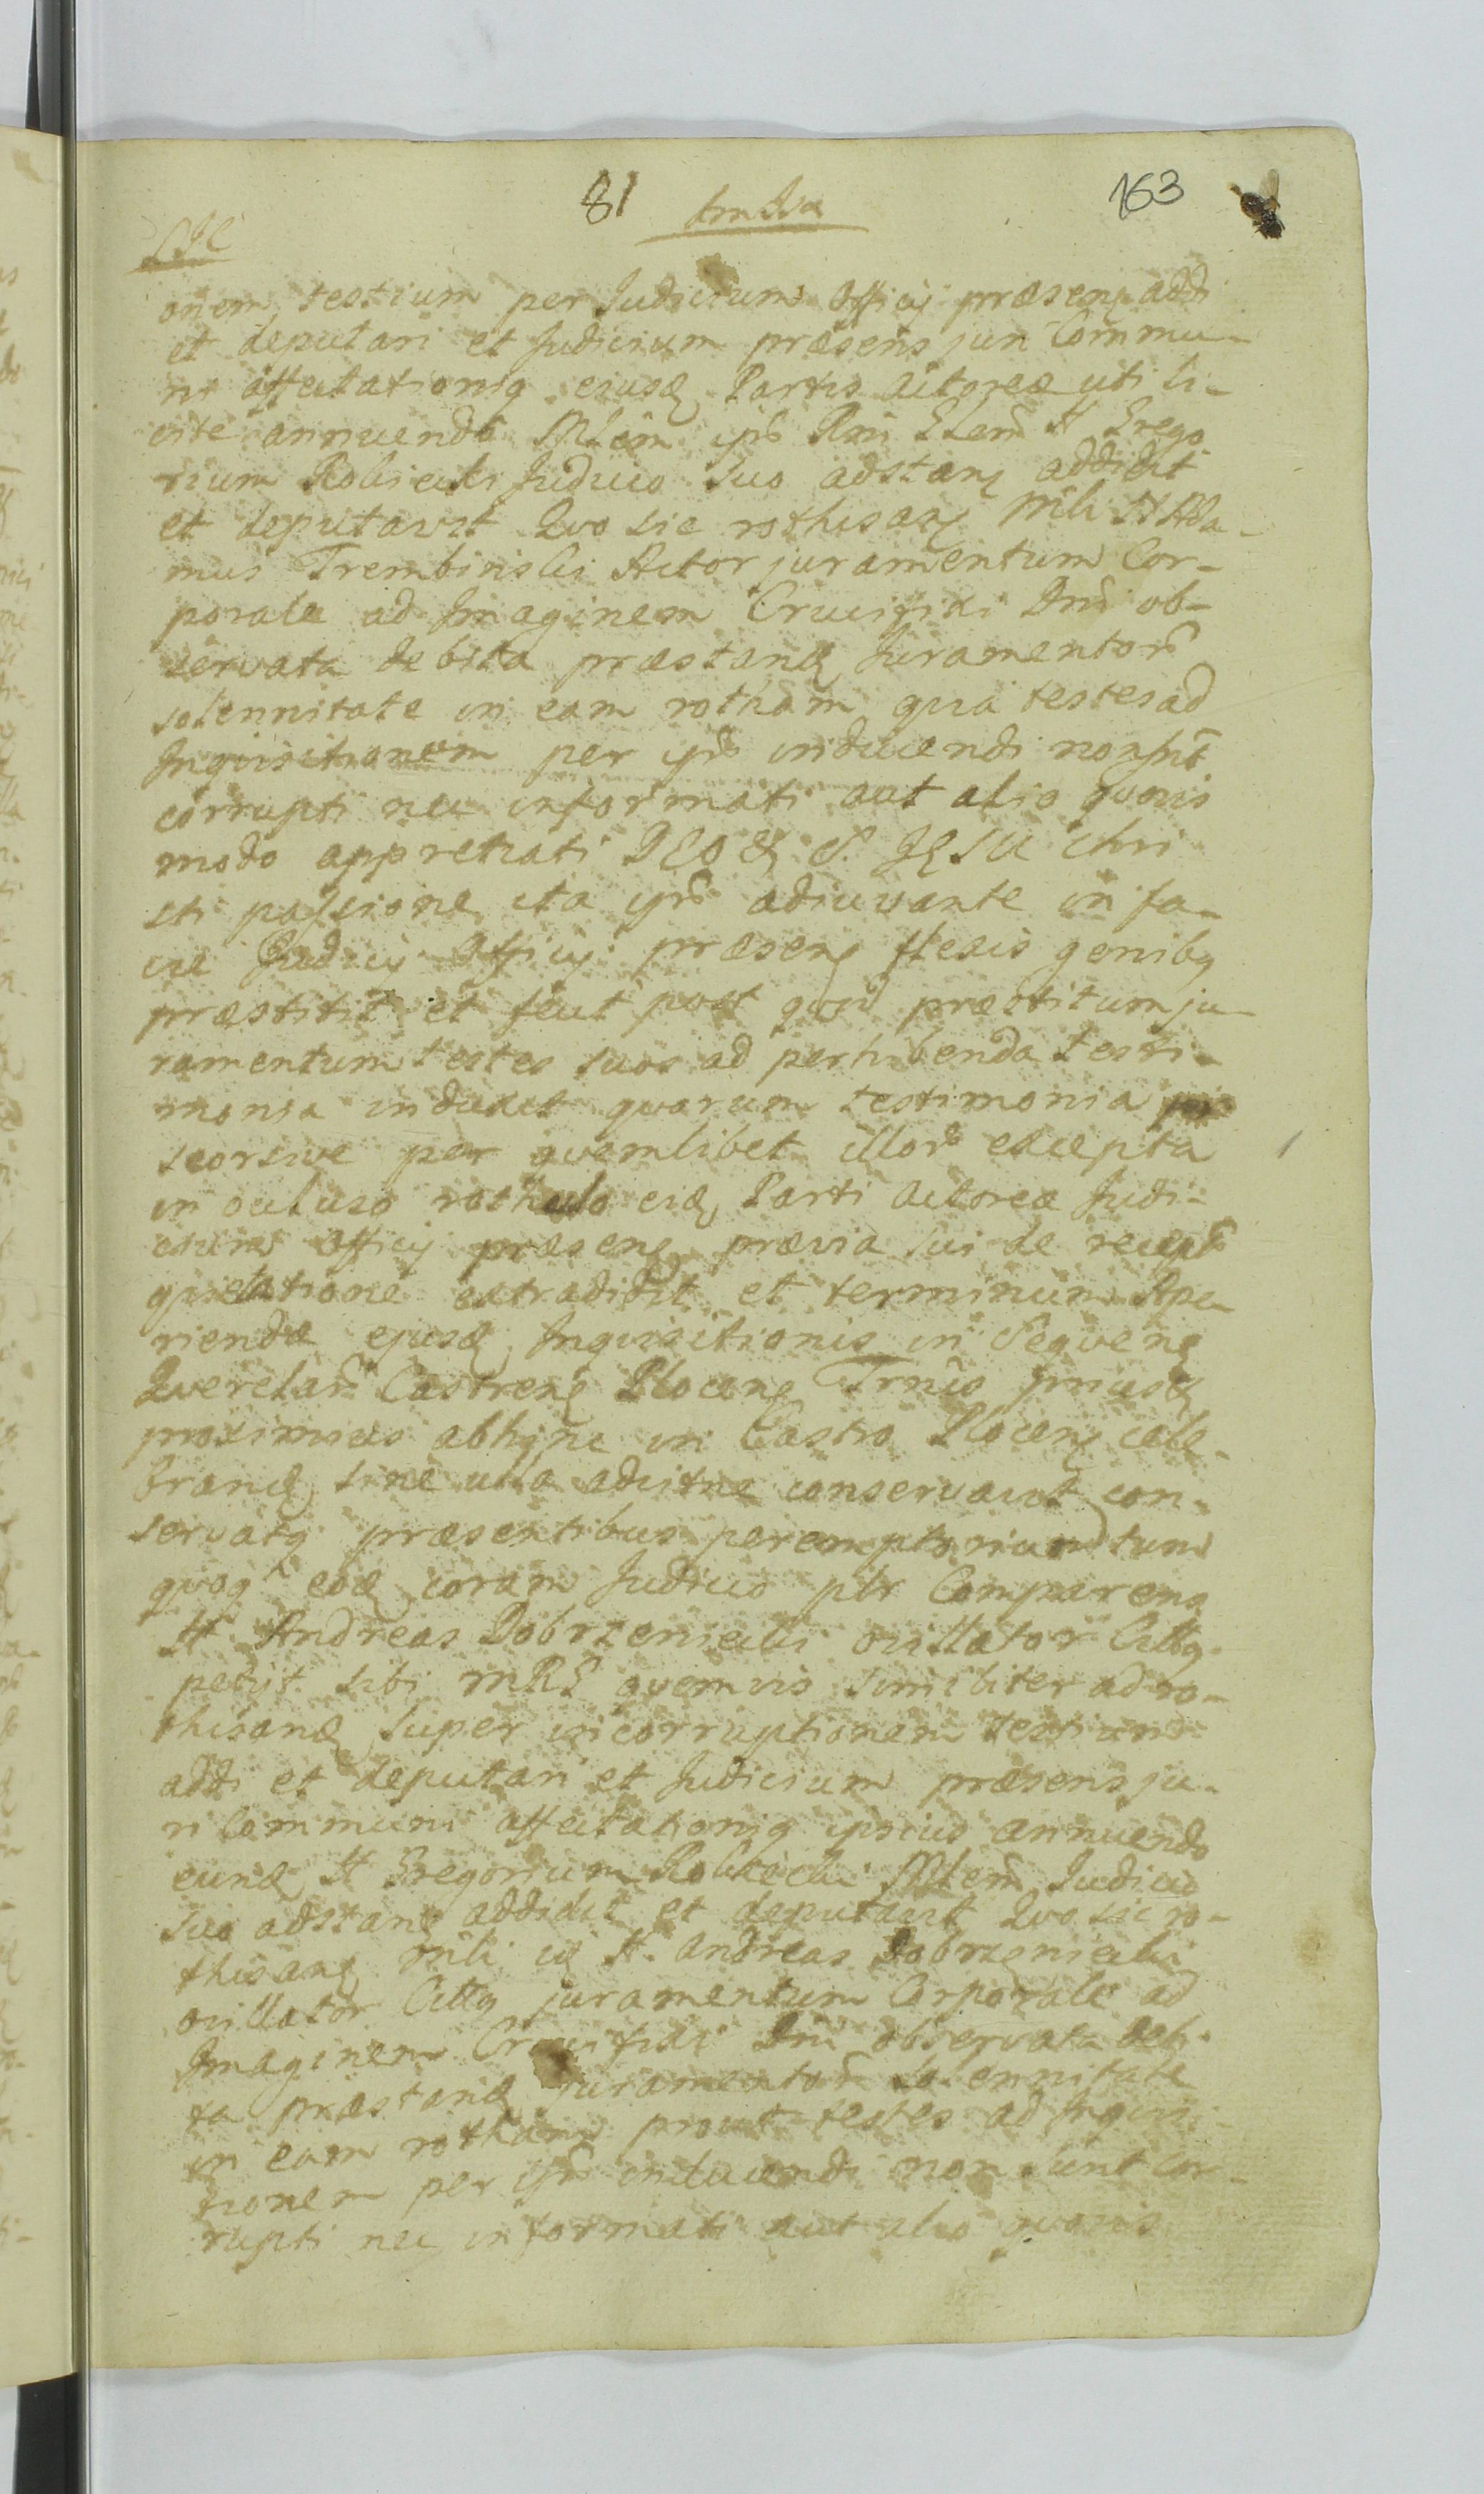 81
163
onem testium per Judicium Officij præsenę addi
et deputari et Judicium præsens juri Commu-
ni affectationiq ejusdę Partis Actoreæ uti li-
cite annuendo Mlem ipś Rni Elem H Grego
rium Robiecki Judicio suo adstanę addidit
et deputavit Quo sic rothisanę Mili H Ada-
mus Trembinski Actor juramentum Cor-
porale ad Imaginem Crucifixi Dni ob-
servata debita præstandę Juramentor
solennitate in eam rotham quia testes ad
Inquisitionem per ipś inducendi non sūt
corrupti nec informati aut alio quovis
modo appretiati DEO & S. JESU Chri
sti passione ita ipś adiuvante in fa-
cie Judicij Officij præsenę flexis genibq
præstitit et fecit post quod præstitum ju-
ramentum testes suos ad perhibenda testi-
monia induxit quorum testimonia
seorsive per quemlibet illor excepta
in ocluso rothulo eidę Parti Actoreæ Judi-
cium officij præsenę prævia sui de recept
quietatione extradidit et terminum Ape-
riendæ ejusdę Inquisitionis in Seqvenę
Qverelar Castrenę Plocenę Trnis
proximius abhinc in Castro Plocenę cele-
brandę sine ulla adcitne conservavit con-
servatq præsentibus peremptorium tum
quoq eodę coram Judicio plr Comparenę
H Andreas Dobrzeniecki oillator Cittq
petijt sibi MRE quemvis similiter ad ro-
thisandę super incorruptionem testium
addi et deputari et Judicium præsens ju-
ri Communi affectationiq ipsius annuendo
eundę H Gregorium Robiecki Mlem Judicio
suo adstanę addidit et deputavit Quo sic ro-
thisanę Mili idę H. Andreas Dobrzeniecki
oillator Cittq juramentum Corporale ad
Imaginem Crucifixi Dni observata debi-
ta præstandę juramentor solennitate
in eam rotham prout testes ad Inquisi-
tionem per ipś inducendi non sunt cor-
rupti nec informati aut alio quovis